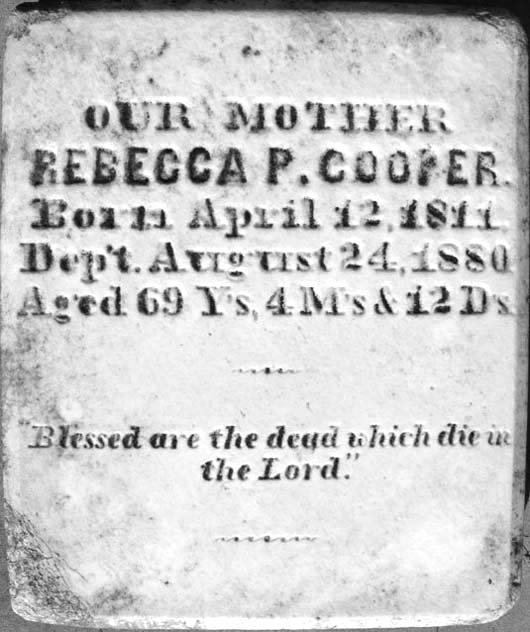 OUR MOTHER
REBECCA P. COOPER.
Born April 12, 1811.
Dep't. August 24, 1880
Aged 69 Y's, 4 M's & 12 D's.
"Blessed are the dead which die in
the Lord."